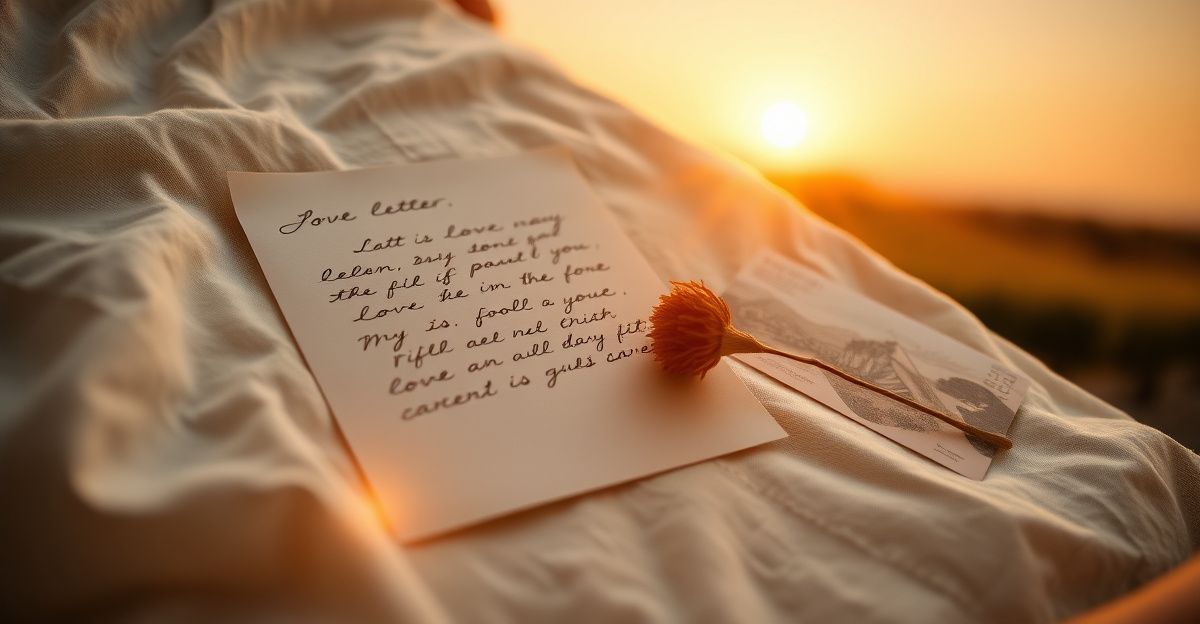 Love letter.
Latt is love nay
lelem. Dsiy sone gaf
the fil if panlt you.
love he im the fone
My is. fooll a youe.
rifll ael nel thish
love an aill day fit
carent is guls care